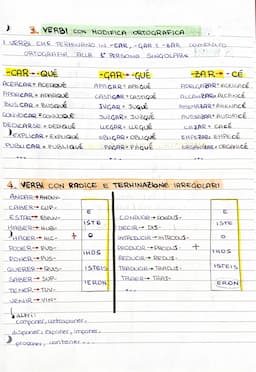 3. VERBI CON MODIFICA ORTOGRAFICA
I VERBI CHE TERMINANO IN -CAR, -GAR E -ZAR, CAMBIANO
ORTOGRAFIA ALLA 1ª PERSONA SINGOLARE
-CAR→-QUÉ -GAR→-GUÉ -ZAR→-CÉ
ACERCAR→ACERQUÉ APAGAR→APAGUÉ
APARCAR→APARQUÉ CASTIGAR→CASTIGUÉ ALCANZAR→ALCANCÉ
BUSCAR→BUSQUÉ JUGAR→JUGUÉ
CONVOCAR→CONVOQUÉ JUZGAR→JUZGUÉ AUTORIZAR→AUTORICÉ
DEDICARSE→DEDIQUÉ LLEGAR→LLEGUÉ CAZAR→CACÉ
EXPLICAR→EXPLIQUÉ OBLIGAR→OBLIGUÉ EMPEZAR→EMPECÉ
PUBLICAR→PUBLIQUÉ PAGAR→PAGUÉ ORGANIZAR→ORGANICÉ
4. VERBI CON RADICE E TERMINAZIONE IRREGOLARI
ANDAR→ANDUV-
CABER→CUP-
ESTAR→ESTUV-
HABER→HUB-
HACER→HIC-
PODER→PUD-
PONER→PUS-
QUERER→QUIS-
SABER→SUP-
TENER→TUV-
VENIR→VIN-
+
E
ISTE
O
IMOS
ISTEIS
IERON
CONDUCIR→CONDUJ-
DECIR→DIJ-
INTRODUCIR→INTRODUJ-
PRODUCIR→PRODUJ-
REDUCIR→REDUJ-
TRADUCIR→TRADUJ-
TRAER→TRAJ-
+
E
ISTE
O
IMOS
ISTEIS
ERON
altri:
componer, contraponer,
disponer, exponer, imponer,
proponer, contener...